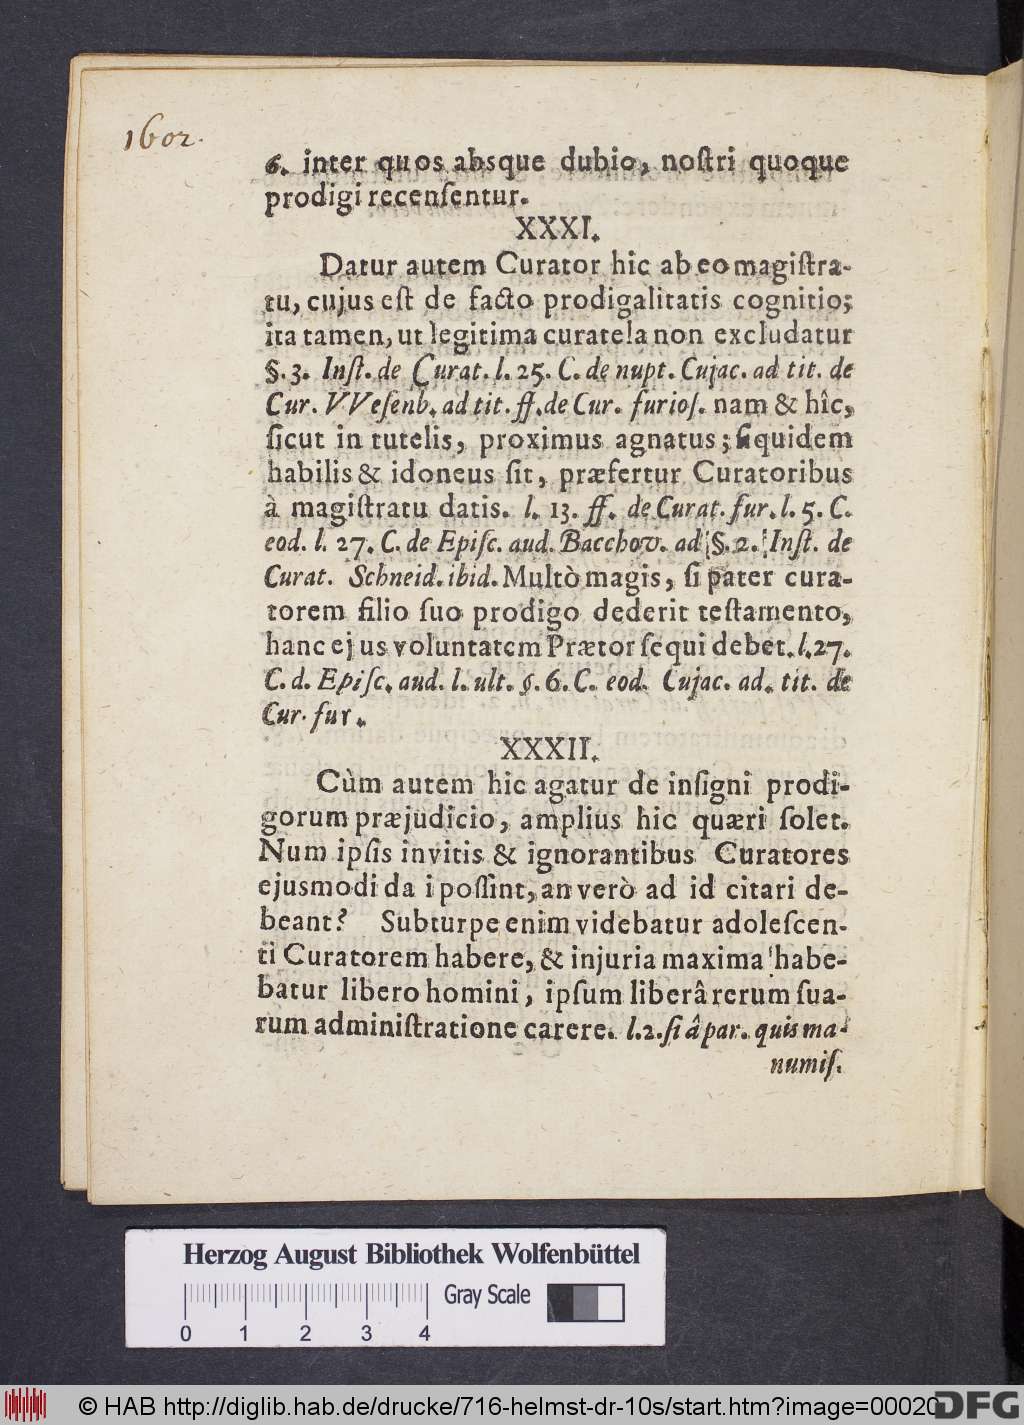 1602.
6. inter quos absque dubio, noſtri quoque
prodigi recenſentur.
XXXI.
Datur autem Curator hic ab eo magiſtra-
tu, cujus eſt de facto prodigalitatis cognitio;
ita tamen, ut legitima curatela non excludatur
§. 3. Inſt. de Curat. l. 25. C. de nupt. Cujac. ad tit. de
Cur. VVeſenb. ad tit. ff. de Cur. furioſ. nam & hîc,
ſicut in tutelis, proximus agnatus; ſiquidem
habilis & idoneus ſit, præfertur Curatoribus
à magiſtratu datis. l. 13. ff. de Curat. fur. l. 5. C.
eod. l. 27. C. de Epiſc. aud. Bacchov. ad §. 2. Inſt. de
Curat. Schneid. ibid. Multò magis, ſi pater cura-
torem filio ſuo prodigo dederit teſtamento,
hanc ejus voluntatem Prætor ſequi debet. l. 27.
C. d. Epiſc. aud. l. ult. §. 6. C. eod. Cujac. ad. tit. de
Cur. fur.
XXXII.
Cùm autem hic agatur de inſigni prodi-
gorum præjudicio, amplius hic quæri ſolet.
Num ipſis invitis & ignorantibus Curatores
ejusmodi da i poſſint, an verò ad id citari de-
beant? Subturpe enim videbatur adoleſcen-
ti Curatorem habere, & injuria maxima habe-
batur libero homini, ipſum liberâ rerum ſua-
rum adminiſtratione carere. l. 2. ſi â par. quis ma-
numiſ.
Herzog August Bibliothek Wolfenbüttel
Gray Scale
0 1 2 3 4
© HAB http://diglib.hab.de/drucke/716-helmst-dr-10s/start.htm?image=00020
DFG